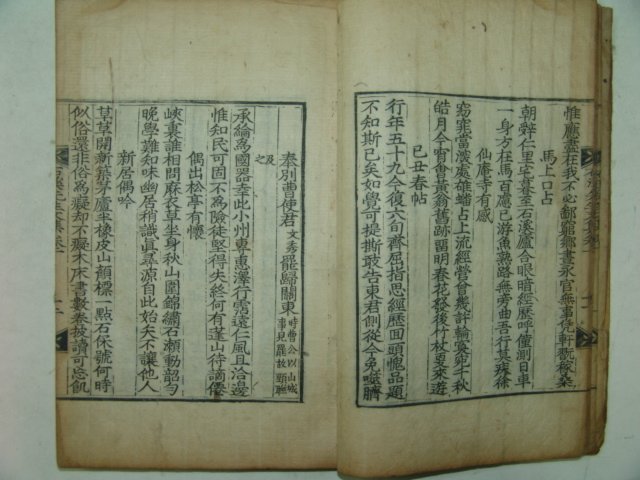 惟應盡在我不必鄙窮鄉晝永官無事凭軒觀稼桑
馬上口占
朝辭仁里宅暮至石溪廬合眼暗經歷呼僮測日車
一身方在馬百慮已游魚熟路無旁曲吾行莫疾徐
仙庵寺有感
窈窕當溪處雄蟠占上流經營曾幾許輪奐第千秋
皓月今宵會黃翁舊跡留明春花發後竹杖要來遊
己丑春帖
行年五十九今復六旬齊屈指思經歷回頭愧品題
不知斯已矣如覺可提撕敢告東君側從今免噬臍
奉別曹使君文秀罷歸關東時曹公以山城
事見罷故頸聯
及之
承綸爲國器莅此小州東東海澤行當遠仁風且洽邊
惟知民可固不爲險徒堅得失終何有蓬山待謫僊
偶出松亭有懷
峽裏誰相問麻衣草坐身秋山圍錦繡石瀨動韶勻
晩學誰知味幽居稍識眞尋源自此始矢不讓他人
新居偶吟
草草開新築茅廬半橡皮山顏標一點石保號何時
似俗還非俗爲癡却不癡木床書數卷披讀可忘飢